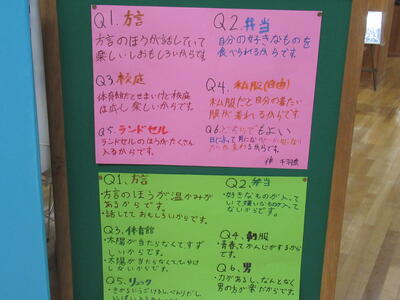 Q1. 方言
方言のほうが話していて
楽しい・おもしろいからです。
Q2. 弁当
自分の好きなものを
食べられるからです。
Q3. 校庭
体育館だとせまいけど校庭
は広し楽しいからです。
Q4. 私服(自由)
私服だと自分の着たい
服が着れるからです。
Q5. ランドセル
ランドセルのほうがたくさん
入るからです。
Q6. どちらでもよい
Q1. 方言
・方言のほうが温かみが
あるからです。
・話してておもしろいからです。
Q2. 弁当
・好きなものが入って
いて嫌いなものが入って
ないからです。
Q3. 体育館
・太陽が当たらなくてすず
しいからです。
・太陽が当たらなくてひやけ
しないからです。
Q4. 制服
・青春ってかんじがするから
です。
Q5. リュック
Q6. 男
・力があるし、なんとなく
男の方が楽だからです。